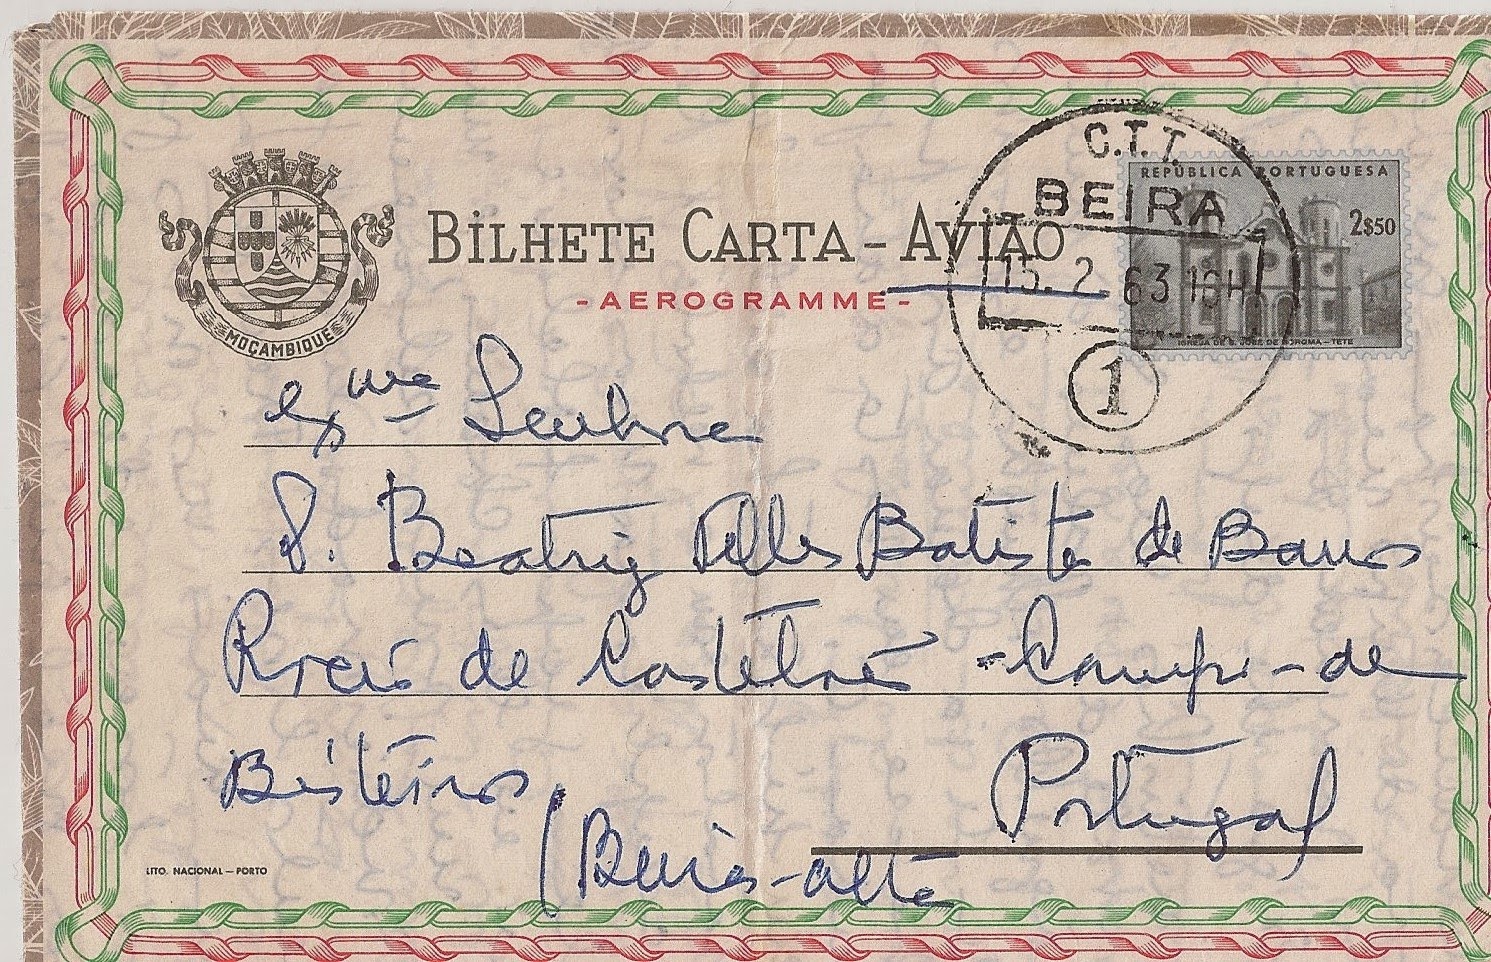 C.T.T.
BEIRA
15. 2. 63 19H
1
REPÚBLICA PORTUGUESA
2$50
IGREJA DE S. JOSÉ DE BOROMA — TETE
MOÇAMBIQUE
BILHETE CARTA - AVIÃO
- AEROGRAMME -
Exma Senhora
D. Beatriz Telles Batista de Barros
de Castelões - Campo - de
Besteiros
(Beira-alta
Portugal
LITO. NACIONAL — PORTO